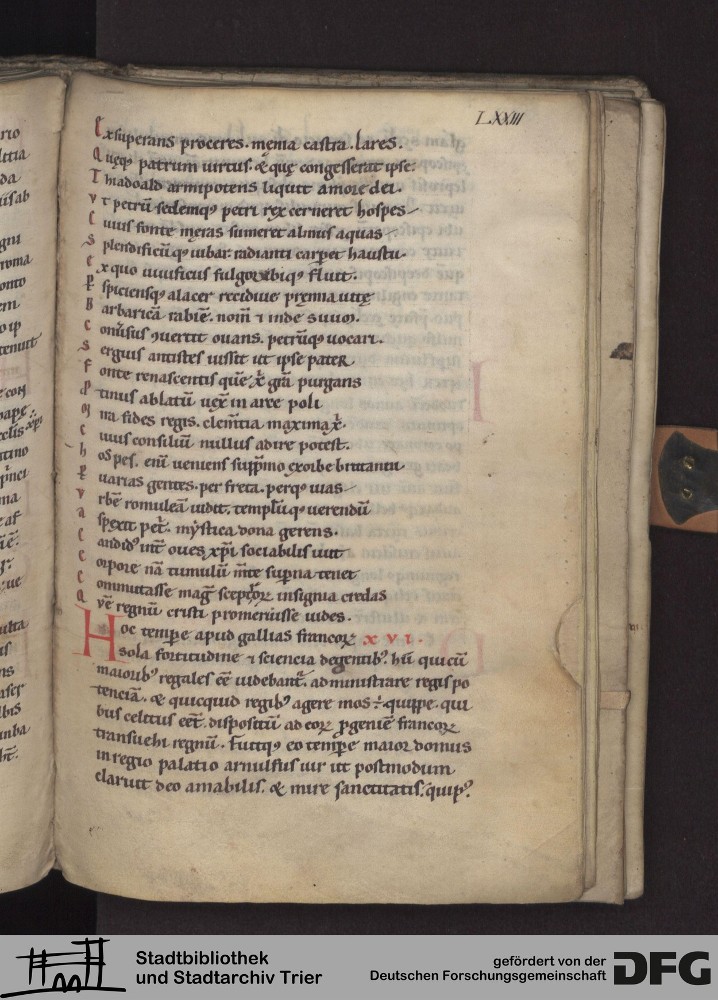 LXXIII
Exsuperans proceres. męnia castra. lares.
Quęq; patrum uirtus. & quę congesserat ipse.
Thiadoald armipotens liquit amore dei.
Vt petrū sedemq; petri rex cerneret hospes
Cuius fonte męras sumeret almus aquas
Splendificūq; iubar radianti carperet haustu.
Ex quo uiuificus fulgor ubiq; fluit.
Pspiciensq; alacer recidiue pręmia uitę
Barbaricā rabiē. nom̄ & inde suum.
Conuersus ↄuertit ouans. petrūq; uocari.
Sergius antistes iussit ut ipse pater
Fonte renascentis quē xp̄i gr̄a purgans
Ptinus ablatū uexit in arce poli
Mira fides regis. clementia maxima xp̄i.
Cuius consiliū nullus adire potest.
hospes. enī ueniens supremo ex orbe britanni
P uarias gentes. per freta. perq; uias
Vrbē romuleā uidit. templūq; uerendū
Aspexit petri. mystica dona gerens.
Candid; int̄ oues xp̄i sociabilis iuit
Corpore nā tumulū m̄te superna tenet
Commutasse maḡ sceptrorꝝ insignia credas
Quē regnū cristi promeruisse uides.
Hoc tempe apud gallias francorꝝ xvi.
sola fortitudine & sciencia degentib;. hii qui cū
maiorib; regales eē uidebant̄. administrare regis po
tenciā. & quicquid regib; agere mos ÷ quippe. qui
bus celitus eēt. dispositū ad eorꝝ pgeniē francorꝝ
transuehi regnū. Fuitq; eo tempe maior domus
in regio palatio arnulfus uir ut postmodum
claruit deo amabilis. & mire sanctitatis. qui p;
Stadtbibliothek
und Stadtarchiv Trier
gefördert von der
Deutschen Forschungsgemeinschaft
DFG